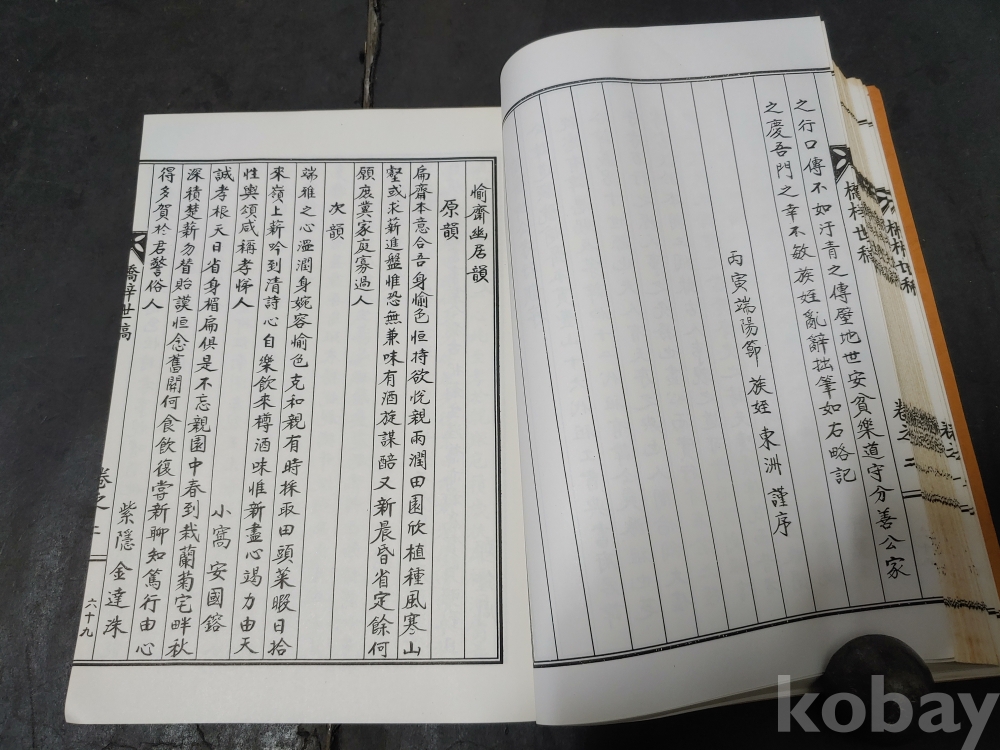 之行口傳不如汗青之傳歷地世安貧樂道守分善公家
之慶吾門之幸不敏族姪亂辭拙筆如右略記
丙寅端陽節 族姪 東洲 謹序
愉齋幽居韻
原韻
扁齋本意合吾身愉色恒持欲悅親雨潤田園欣植種風寒山
壑或求薪進盤惟恐無兼味有酒旋謀醅又新晨昏省定餘何
願庶冀家庭寡過人
次韻
端雅之心溫潤身婉容愉色克和親有時採取田頭菜暇日拾
來嶺上薪吟到清詩心自樂飲來樽酒味惟新盡心竭力由天
性輿頌咸稱孝悌人
小窩 安國鎔
誠孝根天日省身楣扁俱是不忘親園中春到栽蘭菊宅畔秋
深積楚薪勿替貽謨恒念舊開何食飲復嘗新聊知篤行由心
得多賀於君警俗人
紫隱 金達洙
世稿
卷之二
六十九
世稿
卷之二
kobay